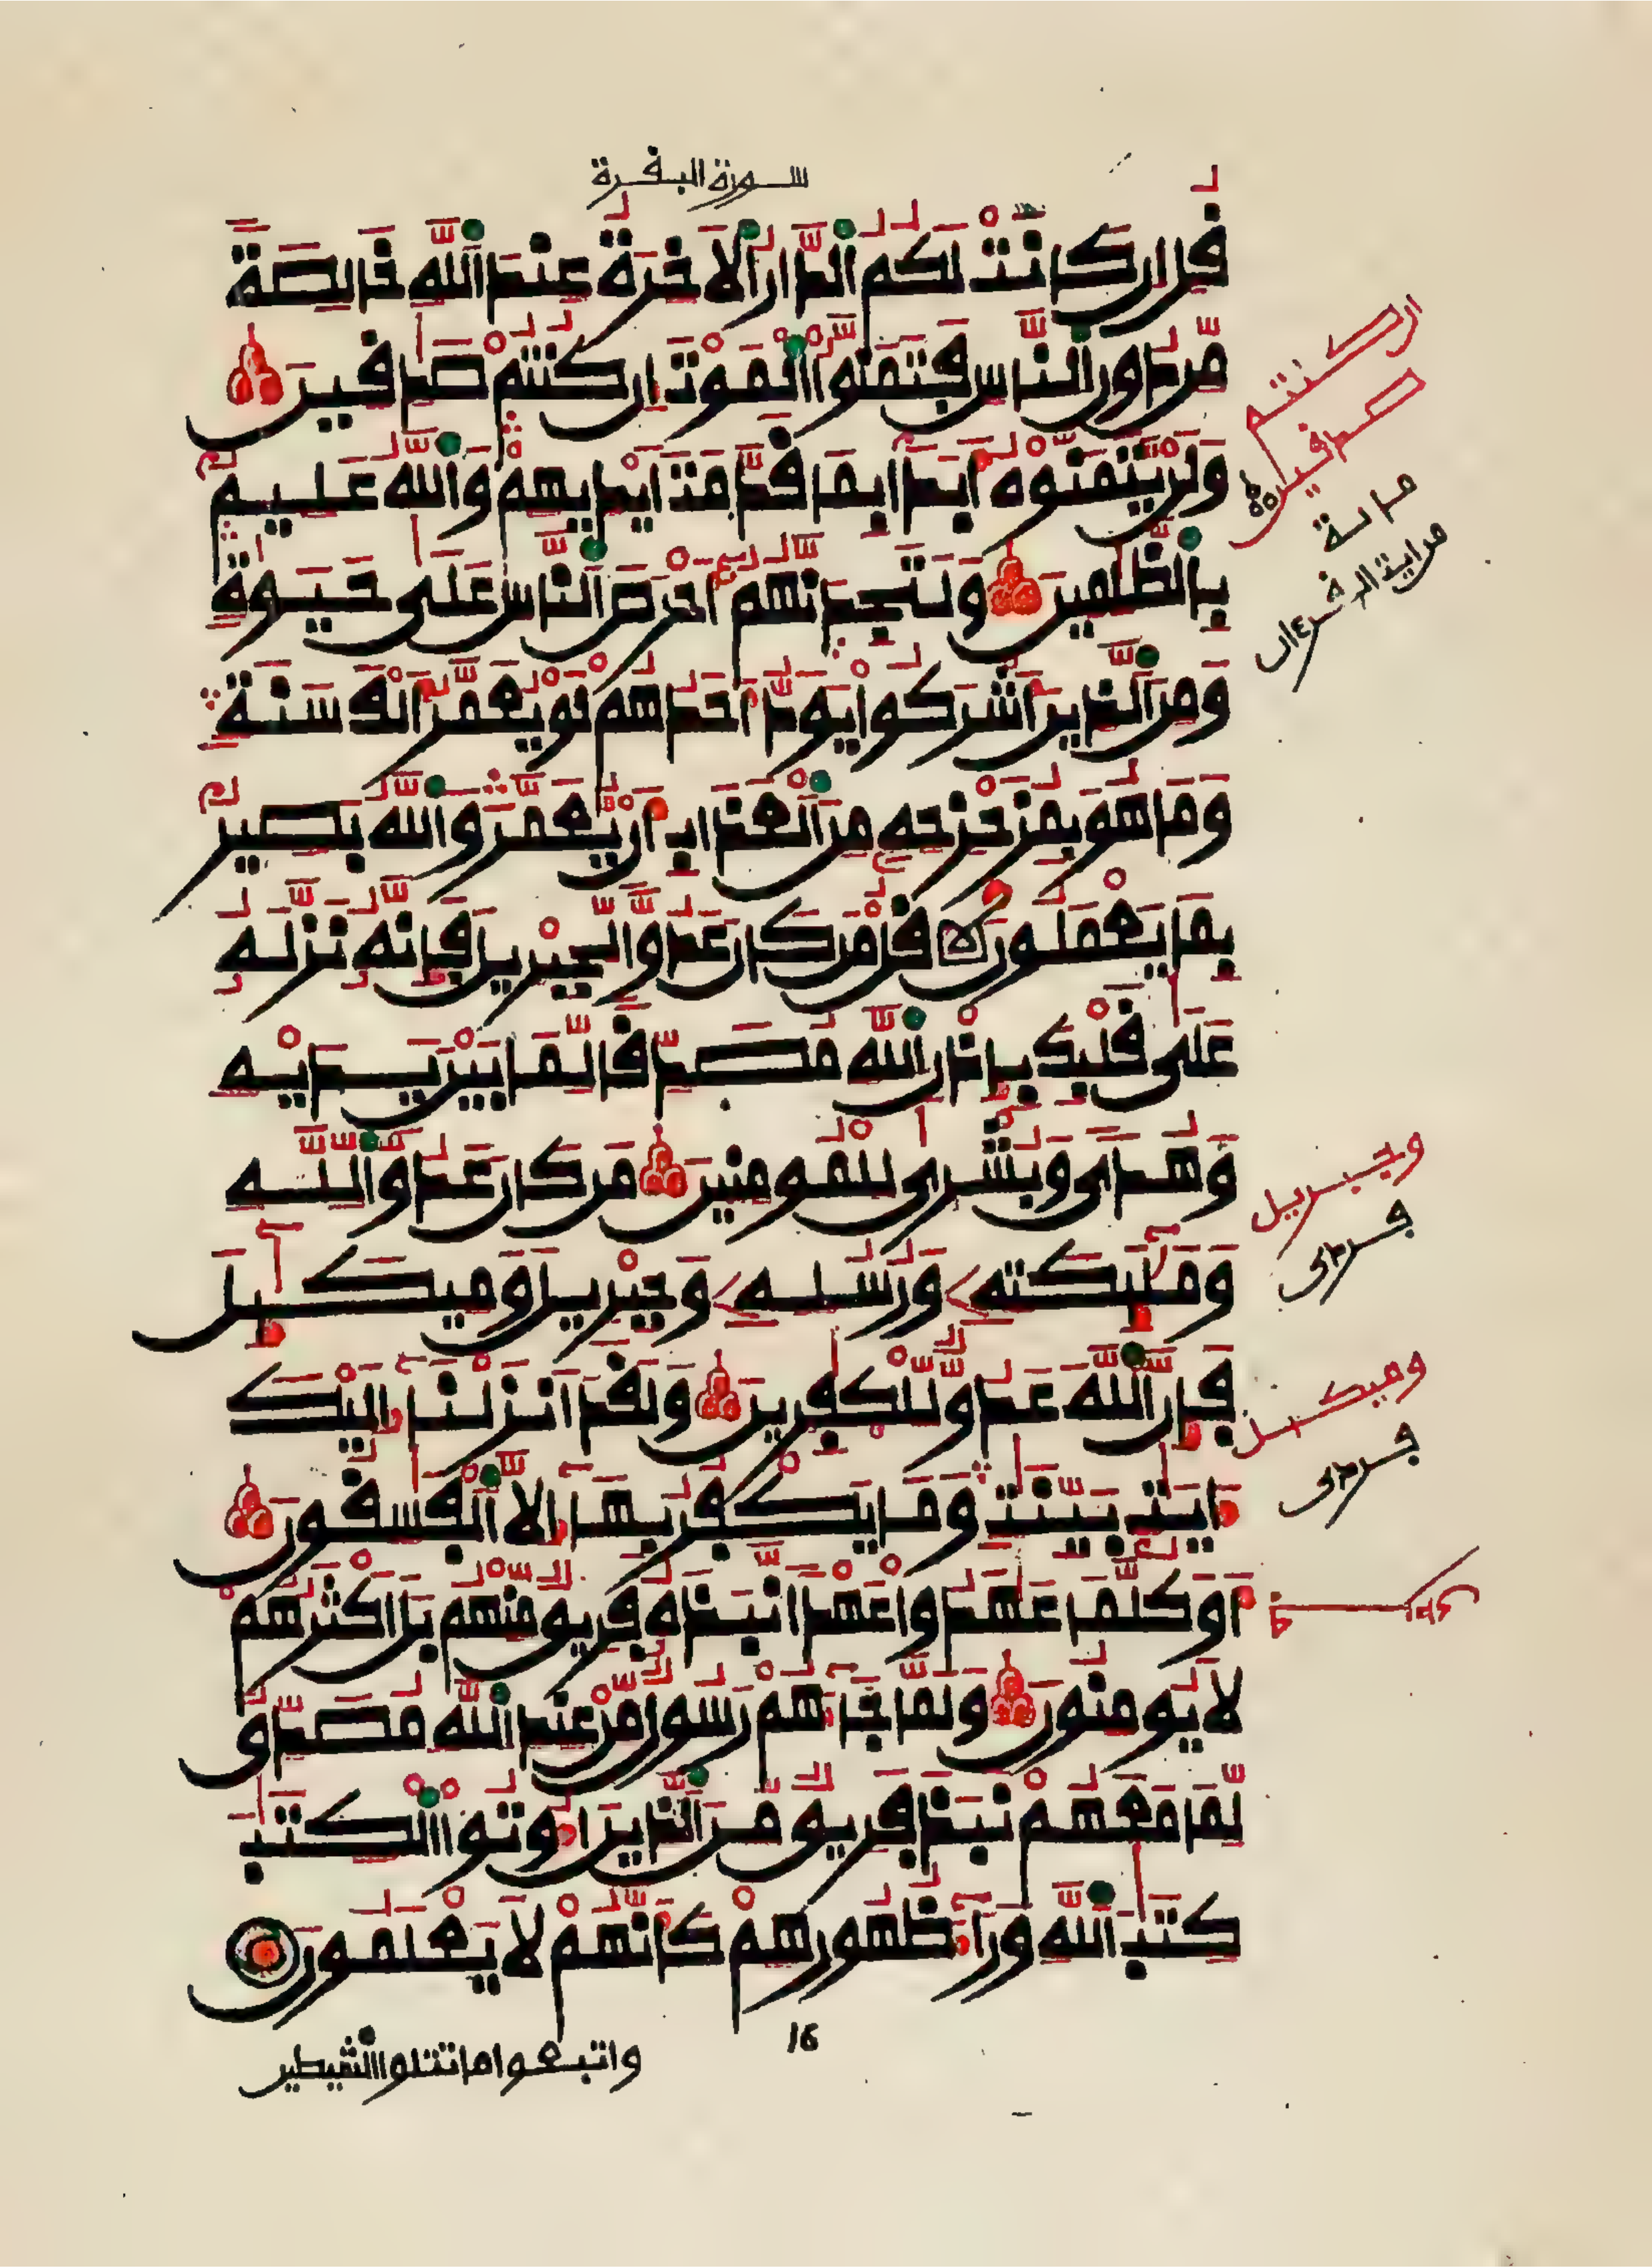 سورة البقرة
قل ان كانت لكم الدار الاخرة عند الله خالصة
من دون الناس فتمنوا الموت ان كنتم صدقين
ولن يتمنوه ابدا بما قدمت ايديهم والله عليم
بالظلمين ولتجدنهم احرص الناس على حيوة
ومن الذين اشركوا يود احدهم لو يعمر الف سنة
وما هو بمزحزحه من العذاب ان يعمر والله بصير
بما يعملون قل من كان عدوا لجبريل فإنه نزله
على قلبك بإذن الله مصدقا لما بين يديه
وهدى وبشرى للمومنين من كان عدوا لله
ومليكته ورسله وجبريل وميكيل
فإن الله عدو للكفرين ولقد انزلنا اليك
ايت بينت وما يكفر بها الا الفسقون
او كلما عهدوا عهدا نبذه فريق منهم بل اكثرهم
لا يومنون ولما جاهم رسول من عند الله مصدق
لما معهم نبذ فريق من الذين اوتوا الكتب
كتب الله ورا ظهورهم كانهم لا يعلمون
16
واتبعوا ما تتلوا الشيطين
ان كنتم
صدقين
من اية القرءان
وجبريل
ومكيل